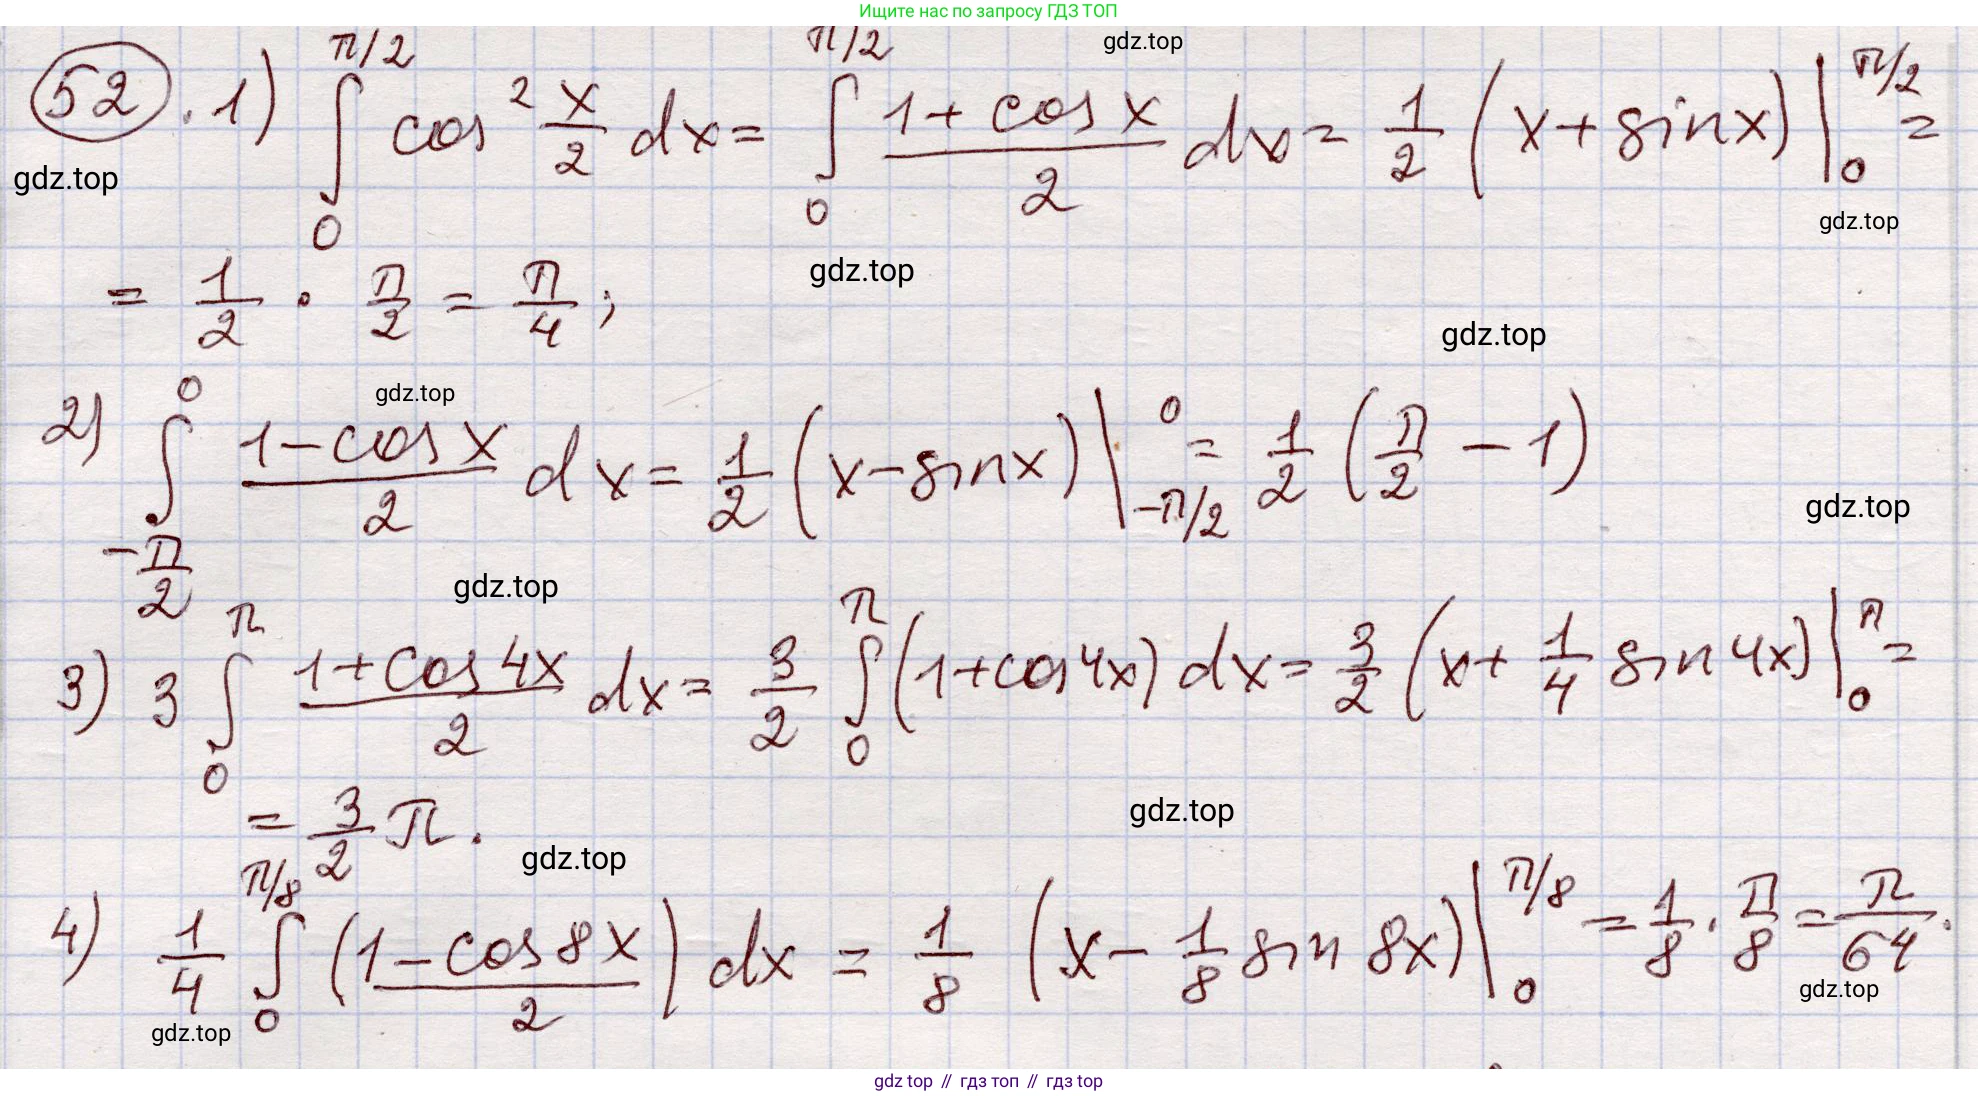 Ищите нас по запросу ГДЗ ТОП
gdz.top
52. 1) ∫₀^{π/2} cos² x/2 dx = ∫₀^{π/2} (1 + cos x)/2 dx = 1/2 (x + sin x) |₀^{π/2} =
gdz.top
gdz.top
= 1/2 · π/2 = π/4 ;
gdz.top
gdz.top
gdz.top
2) ∫_{-π/2}^{0} (1 - cos x)/2 dx = 1/2 (x - sin x) |_{-π/2}^{0} = 1/2 (π/2 - 1)
gdz.top
gdz.top
3) 3 ∫₀^{π} (1 + cos 4x)/2 dx = 3/2 ∫₀^{π} (1 + cos 4x) dx = 3/2 (x + 1/4 sin 4x) |₀^{π} =
= 3/2 π.
gdz.top
gdz.top
4) 1/4 ∫₀^{π/8} ((1 - cos 8x)/2) dx = 1/8 (x - 1/8 sin 8x) |₀^{π/8} = 1/8 · π/8 = π/64.
gdz.top
gdz.top
gdz top // гдз топ // гдз top